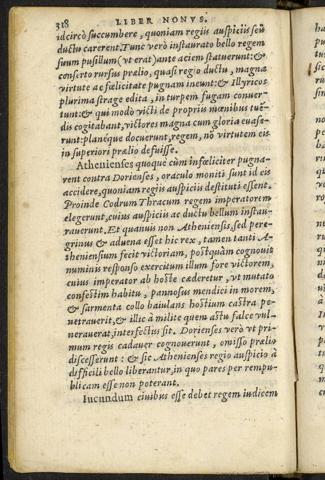 318 LIBER NONVS.
idcircò succumbere, quoniam regiis auspiciis seu
ductu carerent. Tunc verò instaurato bello regem
suum pusillum (vt erat) ante aciem statuerunt: &
conserto rursus prælio, quasi regio ductu, magna
virtute ac fœlicitate pugnam ineunt: & Illyricos
plurima strage edita, in turpem fugam conuer-
tunt: & qui modò victi de propriis mœnibus tuē-
dis cogitabant, victores magna cum gloria euase-
runt: planéque docuerunt, regem, nō virtutem eis
in superiori prælio defuisse.
Athenienses quoque cùm infœliciter pugna-
rent contra Dorienses, oraculo moniti sunt id eis
accidere, quoniam regiis auspiciis destituti essent.
Proinde Codrum Thracum regem imperatorem
elegerunt, cuius auspiciis ac ductu bellum instau-
rauerunt. Et quanuis non Atheniensis, sed pere-
grinus & aduena esset hic rex, tamen tanti A-
theniensium fecit victoriam, postquàm cognouit
numinis responso exercitum illum fore victorem,
cuius imperator ab hoste cæderetur, vt mutato
confestim habitu, pannosus mendici in morem,
& sarmenta collo baiulans hostium castra pe-
netrauerit, & illic à milite quem astu falce vul-
nerauerat, interfectus sit. Dorienses verò vt pri-
mum regis cadauer cognouerunt, omisso prælio
discesserunt: & sic Athenienses regio auspicio à
difficili bello liberantur, in quo pares per rempu-
blicam esse non poterant.
Iucundum ciuibus esse debet regem iudicem